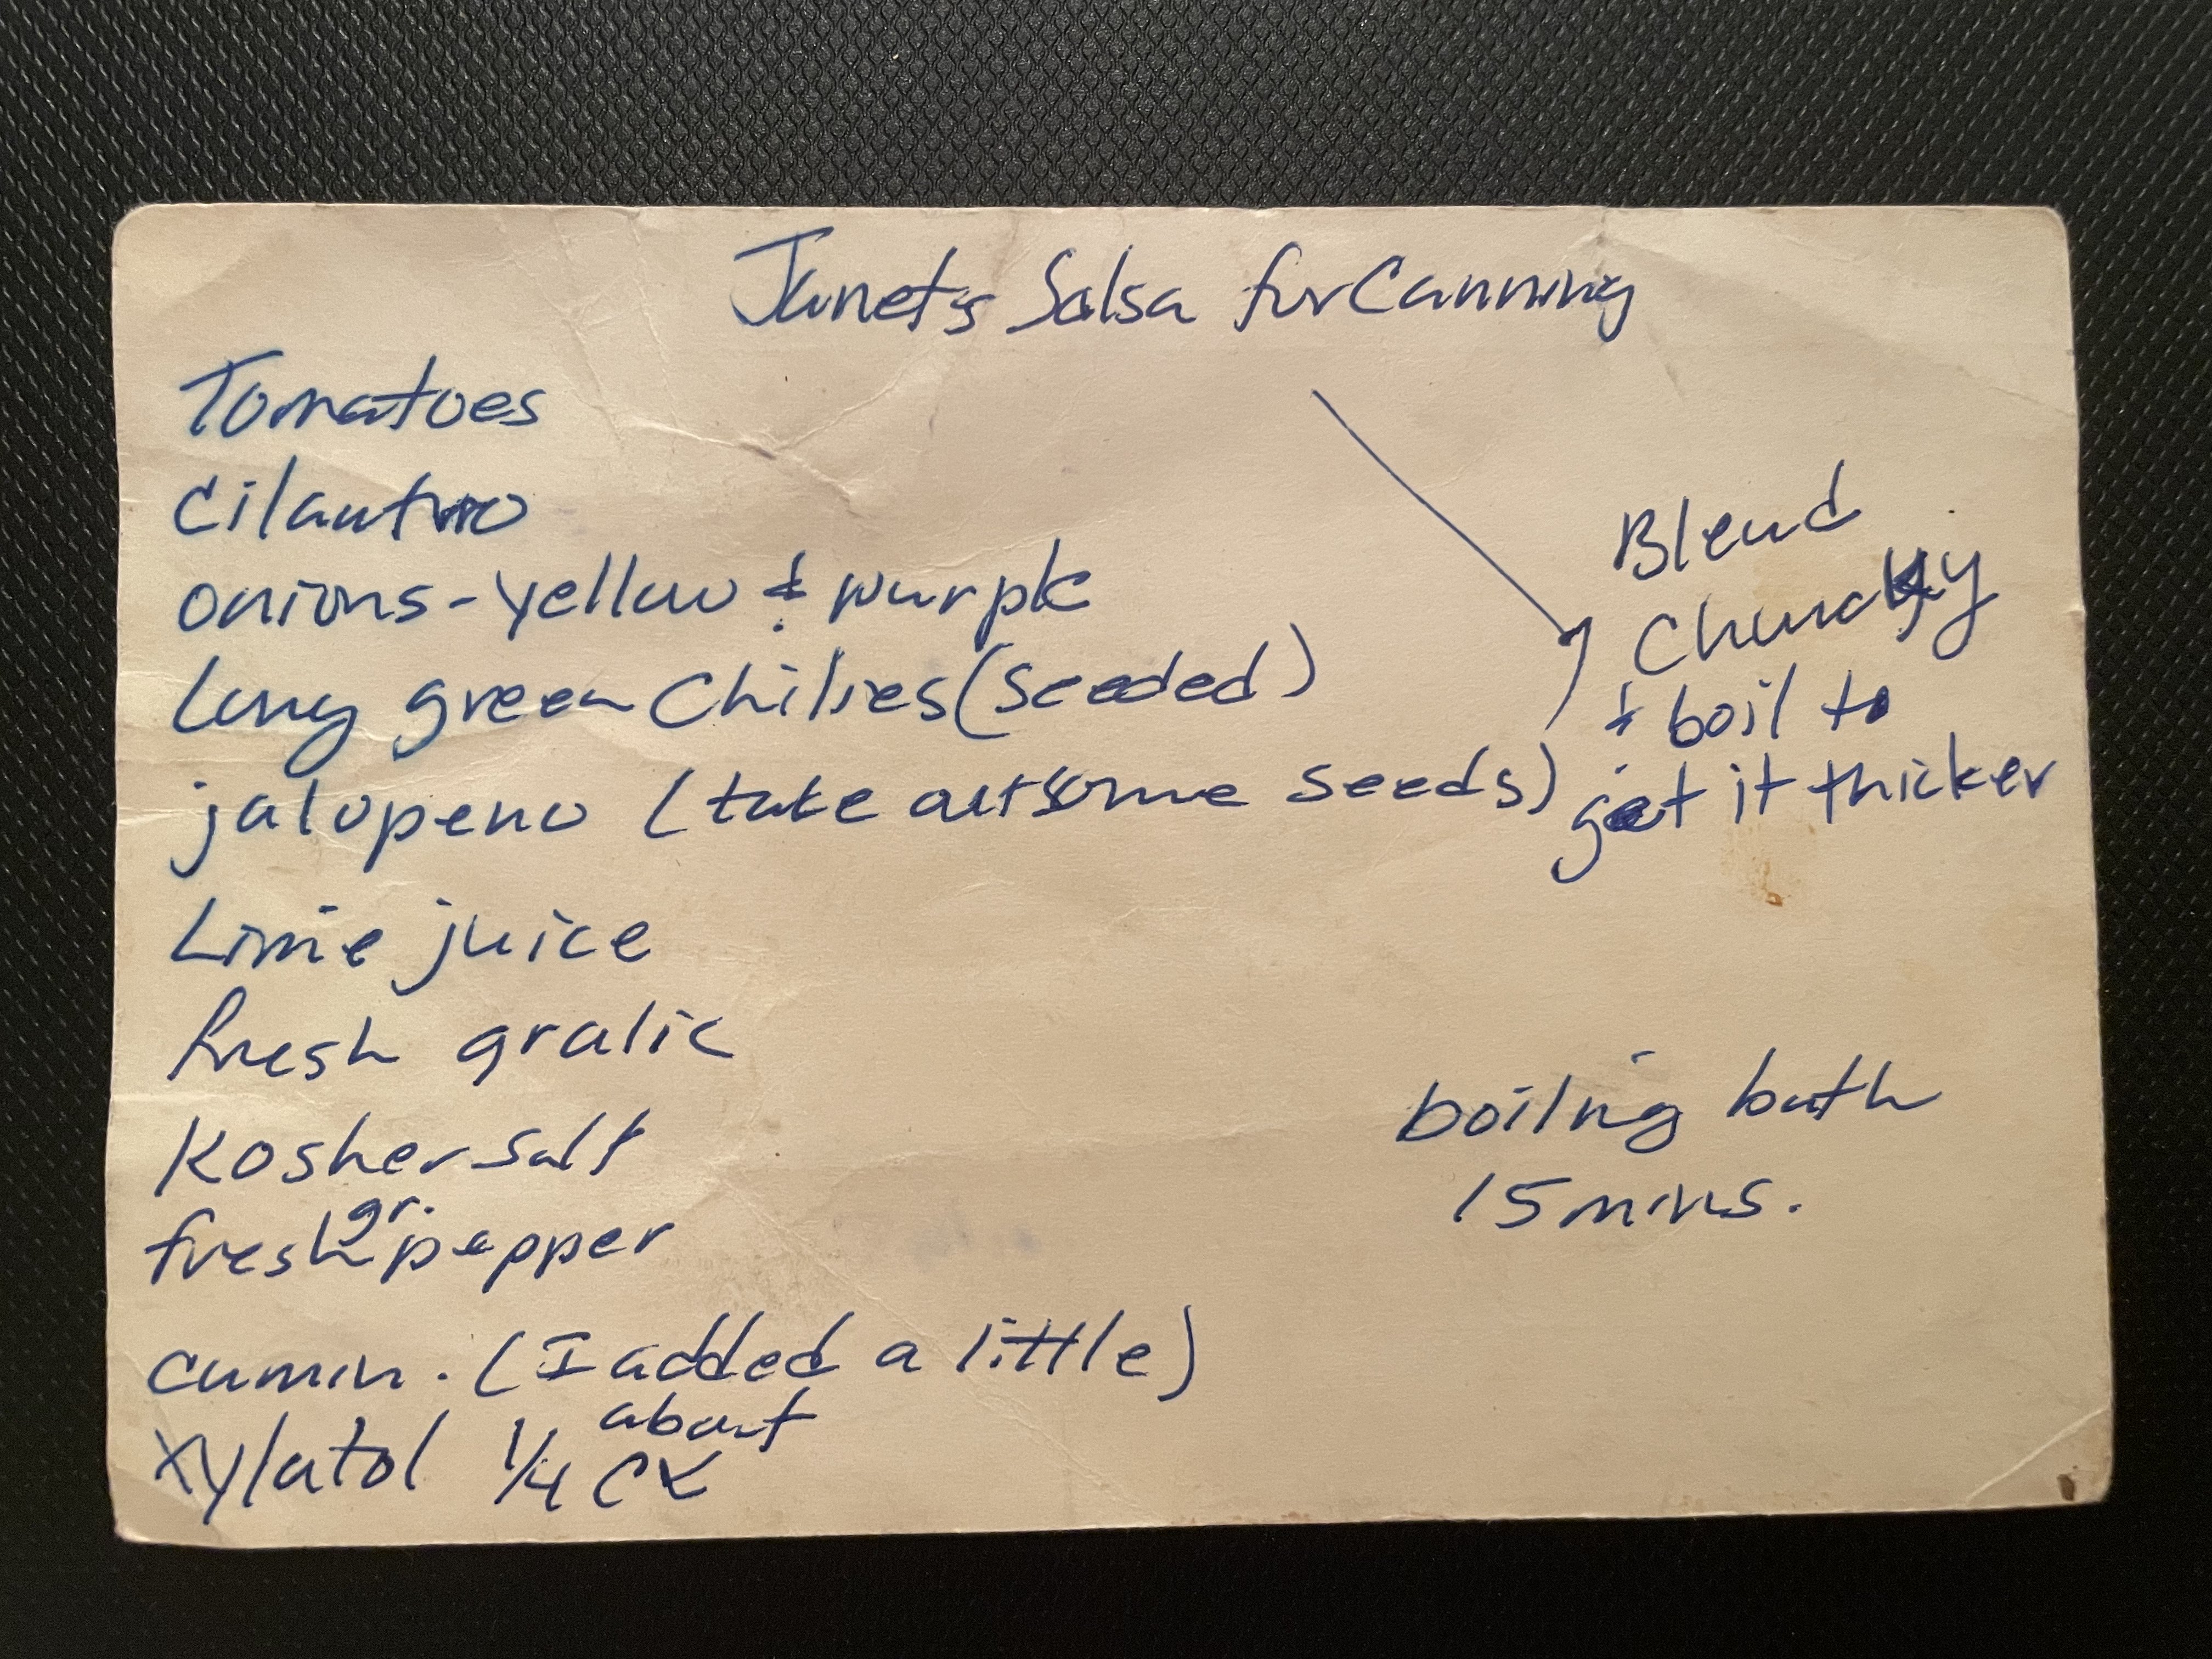 Janet's Salsa for Canning
Tomatoes
Cilantro
onions - yellow & purple
long green Chilies (seeded)
jalopeno (take out some seeds)
Blend
Chunky
& boil to
get it thicker
Lime juice
fresh gralic
Kosher salt
fresh gr. pepper
boilng bath
15 mins.
cumin. (I added a little)
about
xylatol 1/4 C